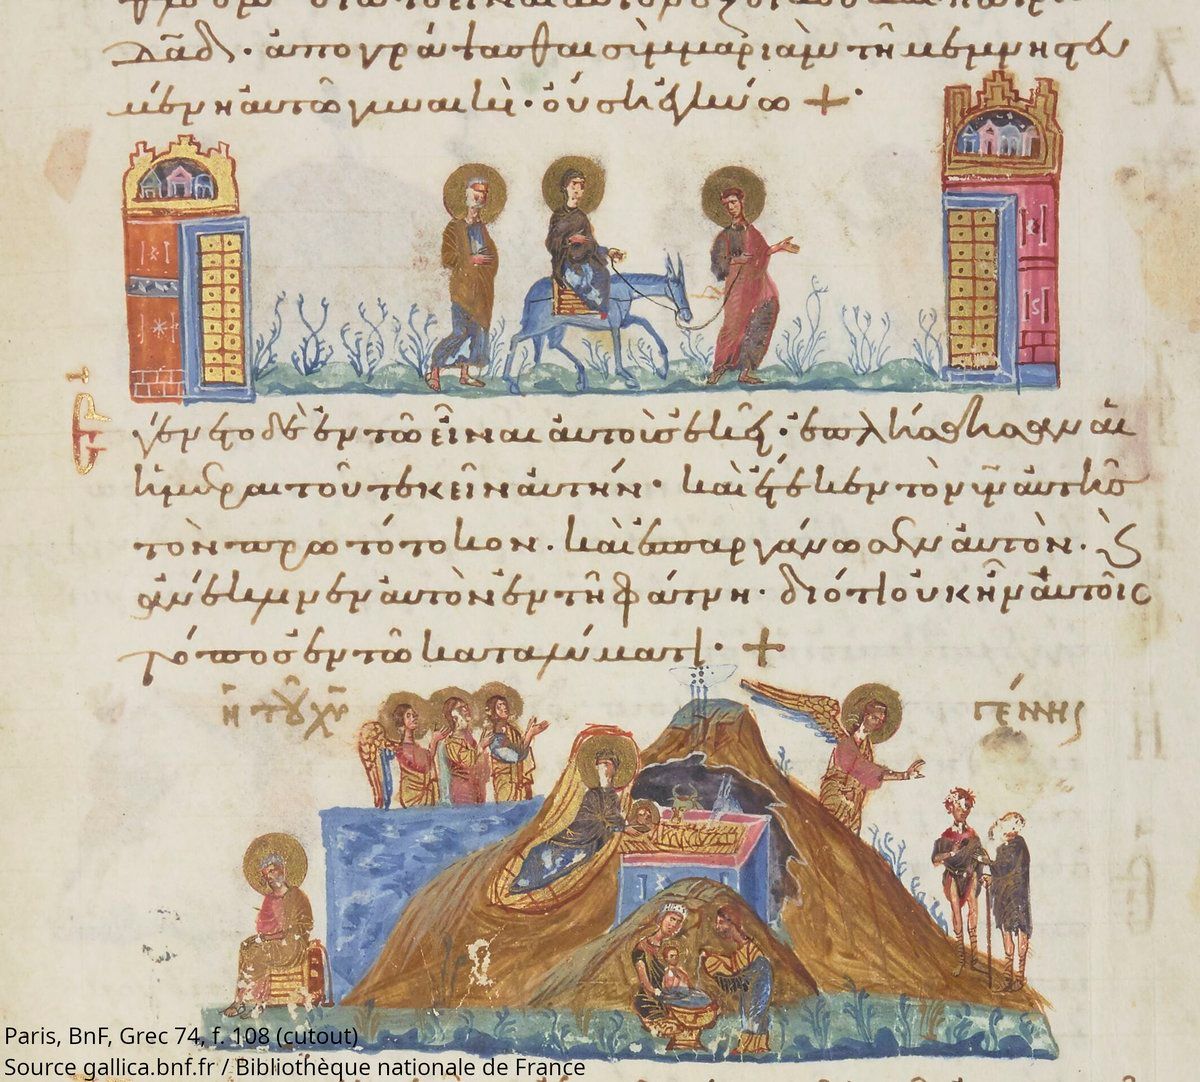 δᾱδ· ἀπογράψασθαι σὺμ μαριὰμ τῆ μεμνηστευ
μένη αὐτῶ γυναικὶ· οὔση ἐγκύω +·
Ἐγένετο δὲ ἐν τῶ εἶναι αὐτοὺς ἐκεῖ· ἐπλήσθησαν αἱ
ἡμέραι τοῦ τεκεῖν αὐτήν· καὶ ἔτεκεν τὸν ῡν αὐτῆς
τὸν πρωτότοκον· καὶ ἐσπαργάνωσεν αὐτὸν· καὶ
ἀνέκλινεν αὐτὸν ἐν τῆ φάτνη· διότι οὐκ ἦν αὐτοῖς
τόπος ἐν τῶ καταλύματι· +
ἡ τοῦ χῡ γέννης
Paris, BnF, Grec 74, f. 108 (cutout)
Source gallica.bnf.fr / Bibliothèque nationale de France